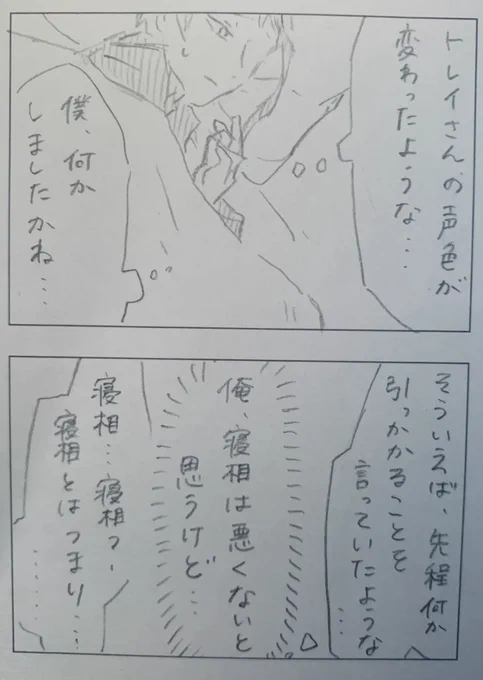 トレイさんの声色が
変わったような…
僕、何か
しましたかね…
そういえば、先程何か
引っかかることを
言っていたような
…
俺、寝相は悪くないと
思うけど…
寝相…寝相?-
寝相とはつまり…
……